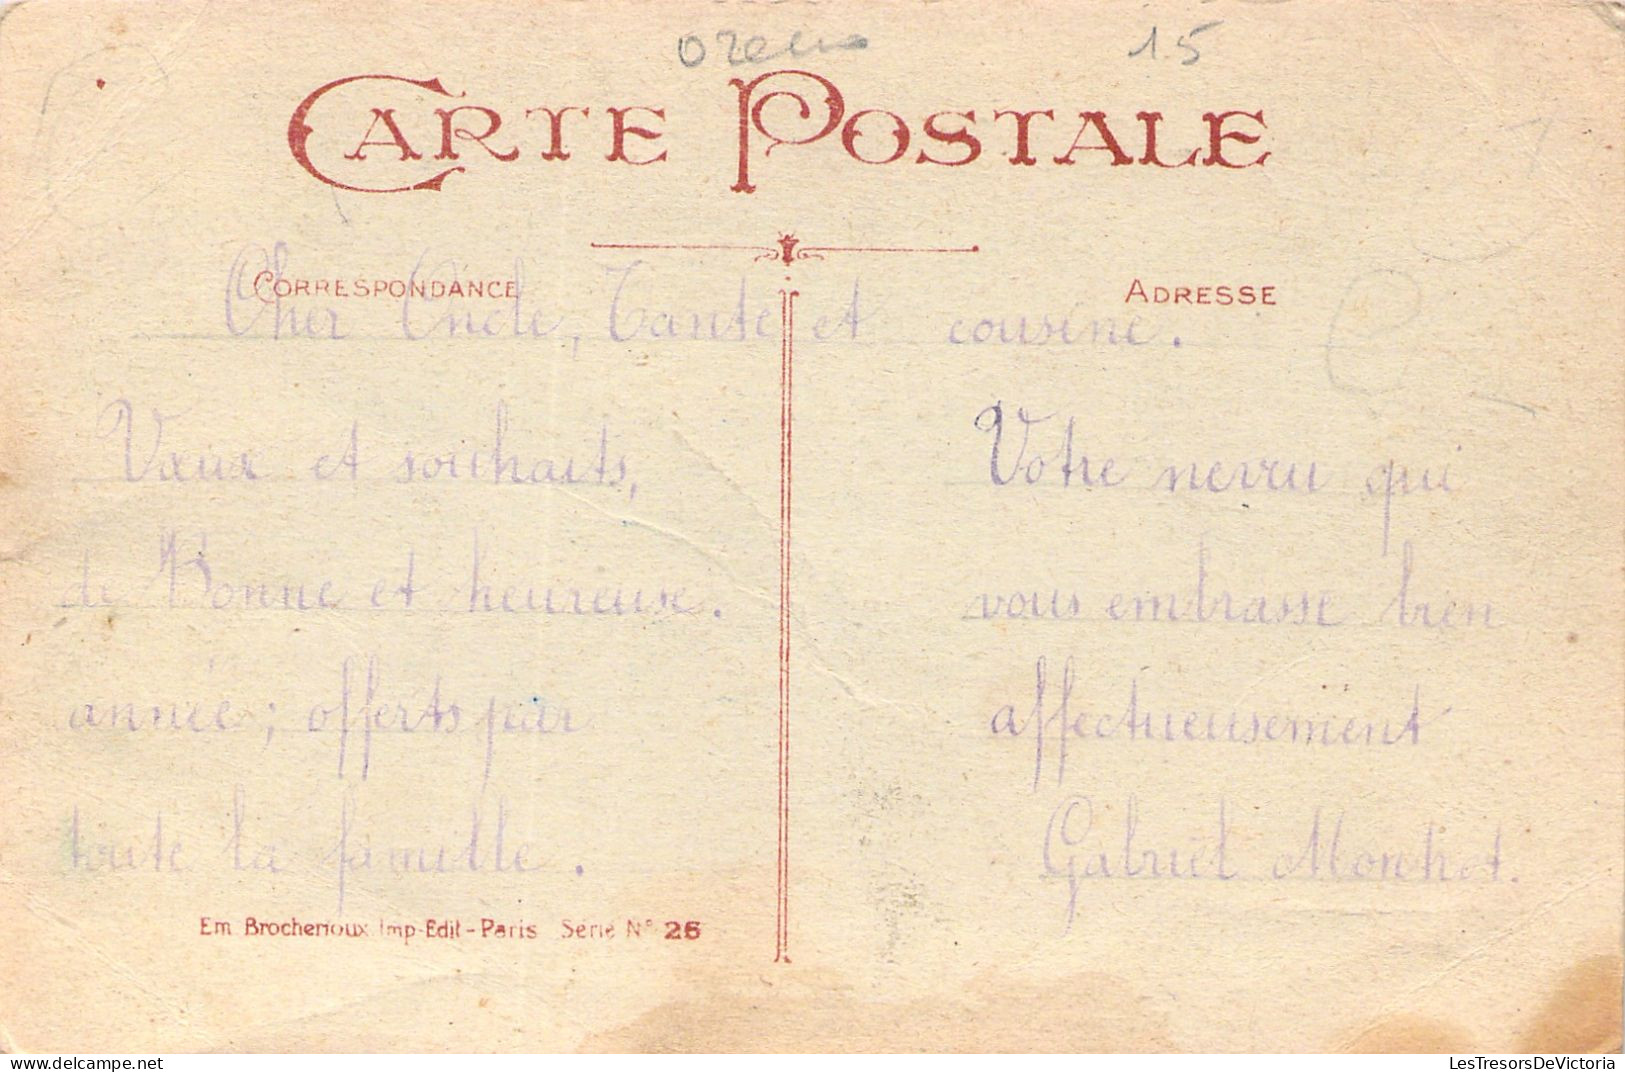 15
CARTE POSTALE
CORRESPONDANCE
ADRESSE
Cher Oncle, Tante et cousine.
Vœux et souhaits,
de Bonne et heureuse.
année; offerts par
toute la famille.
Votre neveu qui
vous embrasse bien
affectueusement
Gabriel Monchot.
Em Brocherioux Imp-Edit-Paris Série N° 26
LesTresorsDeVictoria